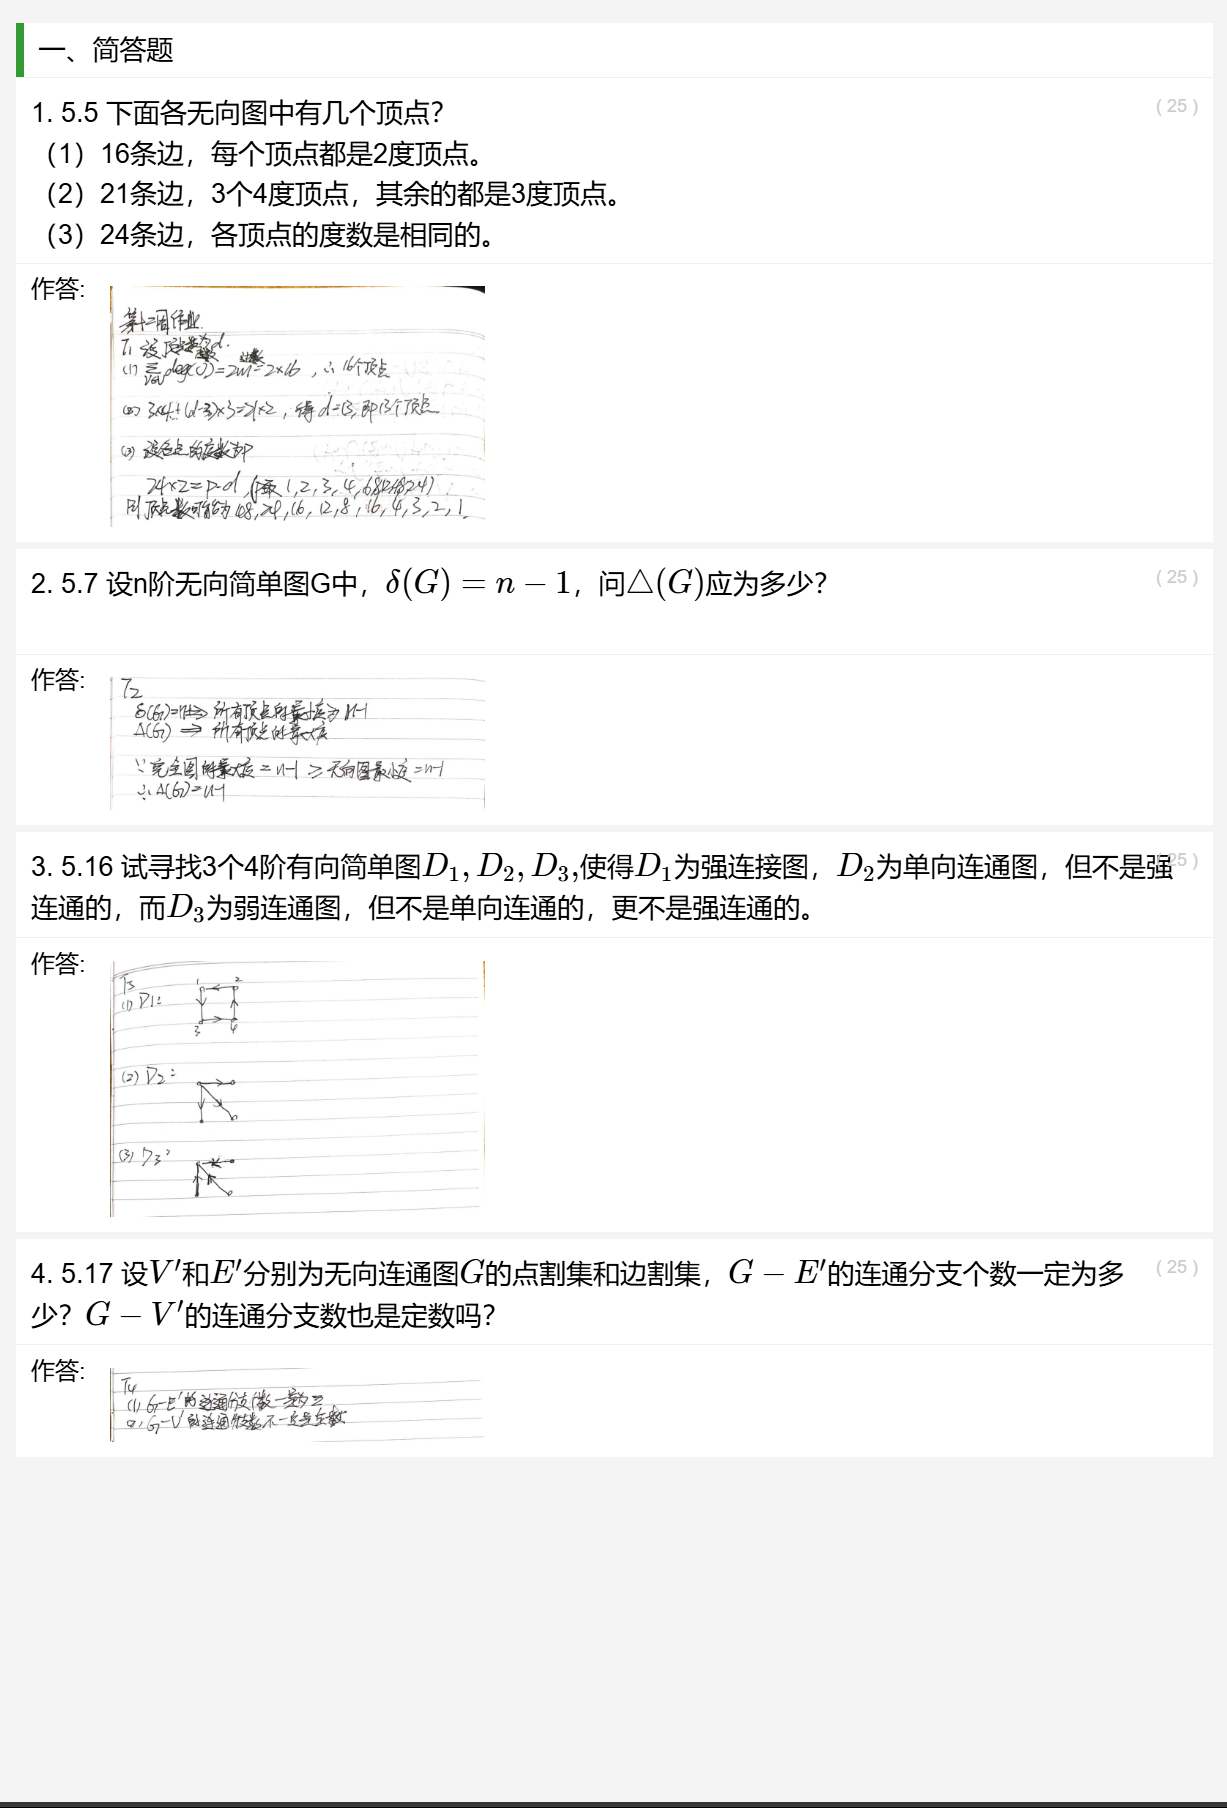 一、简答题
1. 5.5 下面各无向图中有几个顶点?
( 25 )
（1）16条边，每个顶点都是2度顶点。
（2）21条边，3个4度顶点，其余的都是3度顶点。
（3）24条边，各顶点的度数是相同的。
作答:
第十二周作业.
T1 设顶点数为d.
(1) ∑ deg(v)=2m=2×16 , ∴ 16个顶点
v∈V
(2) 3×4+(d-3)×3=21×2 , 得 d=13, 即13个顶点
(3) 设各点的度数为P
24×2=P·d
则顶点数可能为 48, 24, 16, 12, 8, 16, 4, 3, 2, 1.
2. 5.7 设n阶无向简单图G中，δ(G) = n − 1，问△(G)应为多少?
( 25 )
作答:
T2
δ(G)=n-1 => 所有顶点的最小度≥n-1
Δ(G) => 所有顶点的最大度
∵完全图的最大度=n-1 ≥ 无向图最小度=n-1
∴Δ(G)=n-1
3. 5.16 试寻找3个4阶有向简单图D₁, D₂, D₃,使得D₁为强连接图，D₂为单向连通图，但不是强
( 25 )
连通的，而D₃为弱连通图，但不是单向连通的，更不是强连通的。
作答:
T3
(1) D1:
1 2
3 4
(2) D2:
(3) D3:
4. 5.17 设V′和E′分别为无向连通图G的点割集和边割集，G − E′的连通分支个数一定为多
( 25 )
少? G − V′的连通分支数也是定数吗?
作答:
T4
(1) G-E'的连通分支数一定为二
(2) G-V'的连通分支数不一定是定数